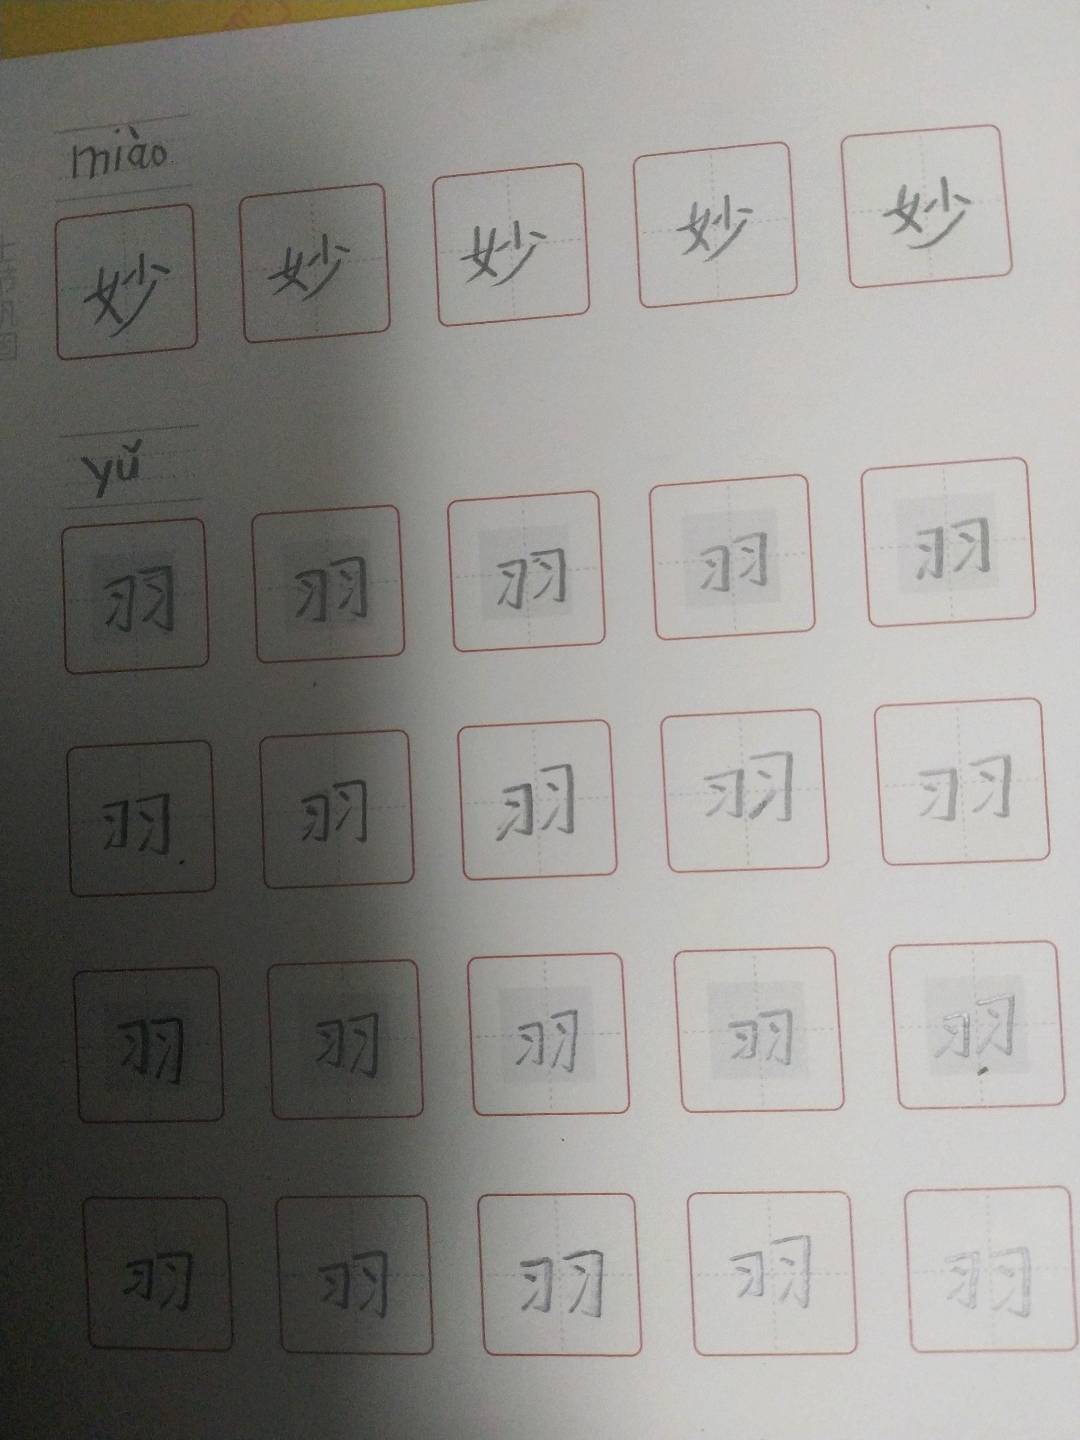 miào
妙 妙 妙 妙 妙
yǔ
羽 羽 羽 羽 羽
羽 羽 羽 羽 羽
羽 羽 羽 羽 羽
羽 羽 羽 羽 羽